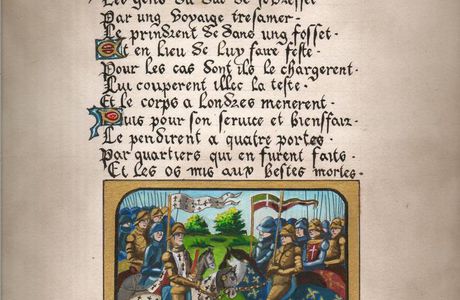 Les gens du duc de
Par ung voyaige tresamer·
Le prindrent de dans ung fosset·
Et en lieu de luy faire feste·
Pour les cas dont ils le chargerent·
Lui couperent illec la teste·
Et le corps a londres menerent·
Puis pour son service et bienffaiz·
Le pendirent a quatre portes·
Par quartiers qui en furent faits·
Et les os mis aux bestes mortes·